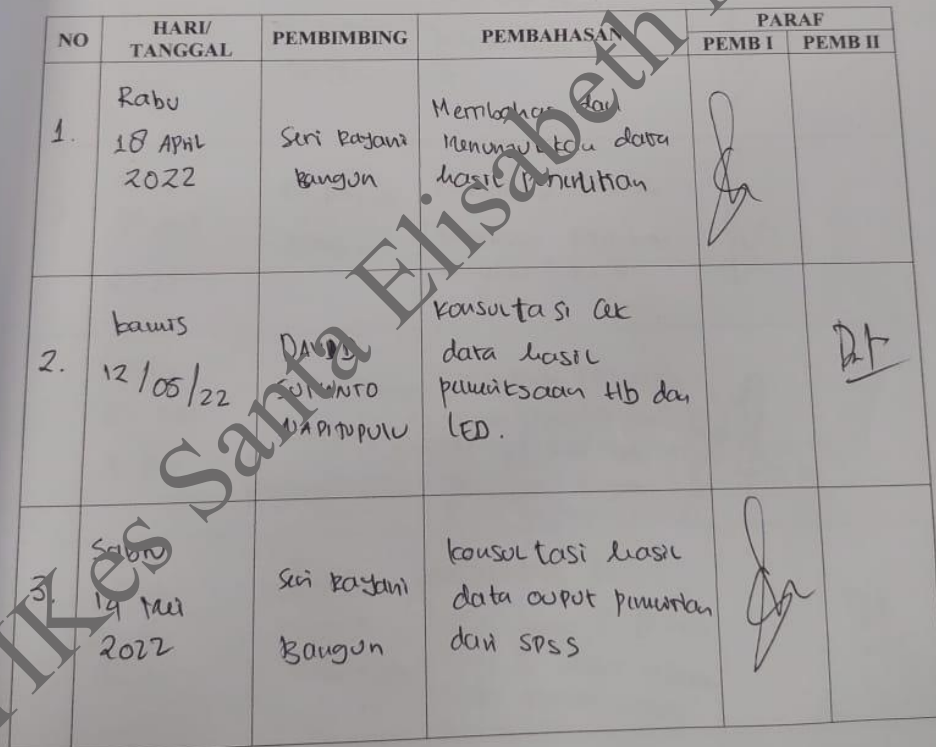 NO HARI/ TANGGAL PEMBIMBING PEMBAHASAN PARAF
PEMB I PEMB II
1. Rabu
18 APRIL
2022
Seri Rayani
Bangun
Membahas dan
data
hasil penelitian
2. kamis
12/05/22
DAVID
SUMANTO
NAPITUPULU
konsultasi cek
data hasil
pemeriksaan Hb dan
LED.
3. Sabtu
14 Mei
2022
Seri Rayani
Bangun
konsultasi hasil
data ouput penelitian
dari SPSS
STIKes Santa Elisabeth